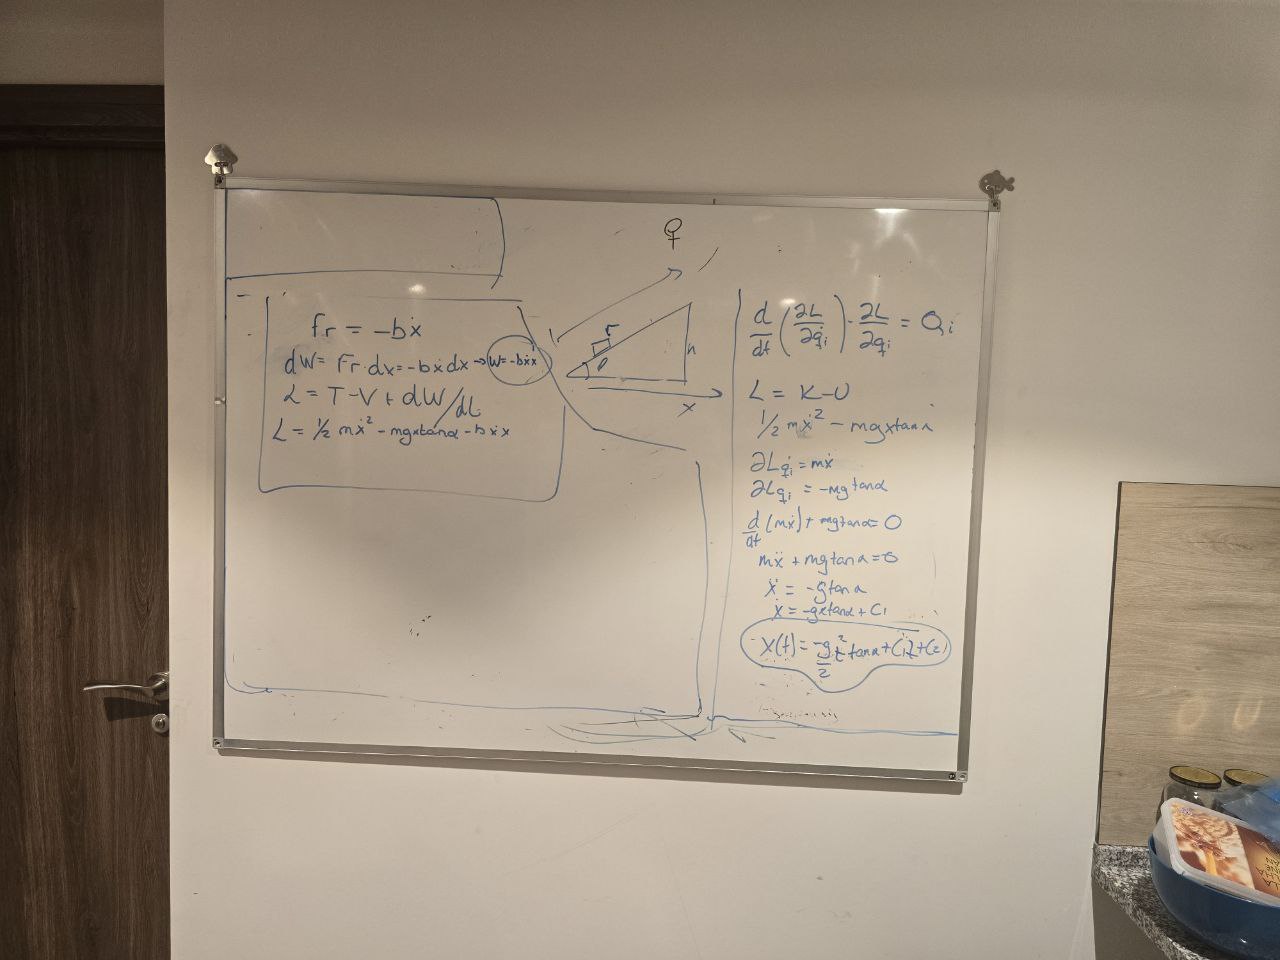 fr = -bẋ
dW = Fr·dx = -bẋdx → W = -bẋx
L = T - V + dW/dL
L = 1/2 mẋ² - mgxtanα - bẋx
r
θ
h
x
d/dt (∂L/∂q̇i) - ∂L/∂qi = Qi
L = K - U
1/2 mẋ² - mgxtanα
∂Lq̇i = mẋ
∂Lqi = -mgtanα
d/dt (mẋ) + mgtanα = 0
mẍ + mgtanα = 0
ẍ = -gtanα
ẋ = -gxtanα + C1
x(t) = -g/2 t² tanα + C1t + C2